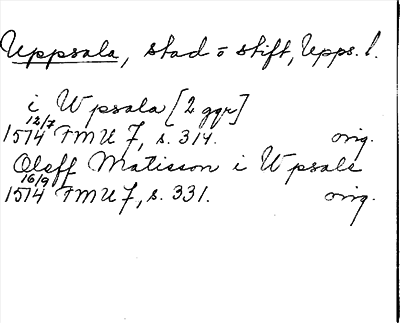 Uppsala, stad o stift, Upps. l.
i Wpsala [2 ggr]
1574 12/7 FMU 7, s. 314. orig.
Oleff Matisson i Wpsale
1574 16/9 FMU 7, s. 331. orig.